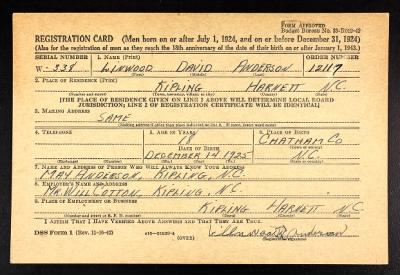 Form Approved
Budget Bureau No. 33-R012-42
REGISTRATION CARD (Men born on or after July 1, 1924, and on or before December 31, 1924)
(Also for the registration of men as they reach the 18th anniversary of the date of their birth on or after January 1, 1943.)
SERIAL NUMBER 1. NAME (Print) ORDER NUMBER
W-338 LINWOOD DAVID ANDERSON 12117
(First) (Middle) (Last)
2. PLACE OF RESIDENCE (Print)
KIPLING HARNETT N.C.
(Number and street) (Town, township, village, or city) (County) (State)
[THE PLACE OF RESIDENCE GIVEN ON LINE 2 ABOVE WILL DETERMINE LOCAL BOARD
JURISDICTION; LINE 2 OF REGISTRATION CERTIFICATE WILL BE IDENTICAL]
3. MAILING ADDRESS
SAME
[Mailing address if other than place indicated on line 2. If same, insert word same]
4. TELEPHONE 5. AGE IN YEARS 6. PLACE OF BIRTH
18 CHATHAM CO
DATE OF BIRTH (Town or county)
DECEMBER 14, 1925 N.C.
(Exchange) (Number) (Mo.) (Day) (Yr.) (State or country)
7. NAME AND ADDRESS OF PERSON WHO WILL ALWAYS KNOW YOUR ADDRESS
MAY ANDERSON, KIPLING, N.C.
8. EMPLOYER'S NAME AND ADDRESS
MR. WILL COTTON, KIPLING, N.C.
9. PLACE OF EMPLOYMENT OR BUSINESS
KIPLING HARNETT N.C.
(Number and street or R. F. D. number) (Town) (County) (State)
I AFFIRM THAT I HAVE VERIFIED ABOVE ANSWERS AND THAT THEY ARE TRUE.
DSS Form 1 (Rev. 11-16-42) (OVER)
(Registrant's signature)